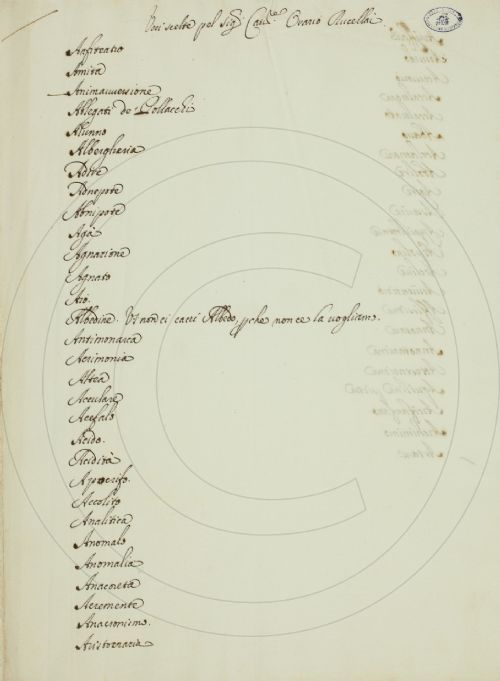 Voci scelte pel Sig.r Cav.re Orazio Rucellai
Anfiteatro
Amita
Animavversione
Allegati de' Collacchi
Alunno
Albergheria
Adire
Adnepote
Abnipote
Agà
Agnazione
Agnato
Aio.
Albedine. Vi non ci cacci Albedo, pche non ce la vogliamo.
Antimonaca
Acrimonia
Altea
Aceulare
Acefalo
Acido.
Acidità
Apocrifo.
Accolito
Analitica
Anomalo
Anomalia
Anacoreta
Acremente
Anacronismo.
Aristocrazia